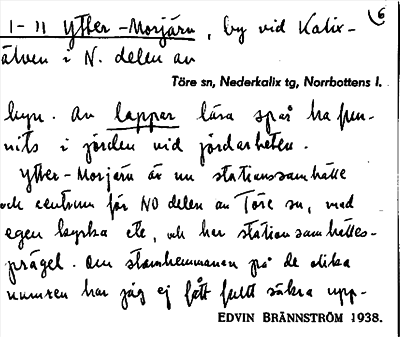 6
1-11 Ytter-Morjärn, by vid Kalix-
älven i N. delen av
Töre sn, Nederkalix tg, Norrbottens l.
byn. Av lappar lära spår ha fun-
nits i jorden vid jordarbeten.
Ytter-Morjärn är nu stationssamhälle
och centrum för NO delen av Töre sn, med
egen kyrka etc, och har stationssamhälles-
prägel. Om stamhemmanen på de olika
numren har jag ej fått fullt säkra upp-
EDVIN BRÄNNSTRÖM 1938.